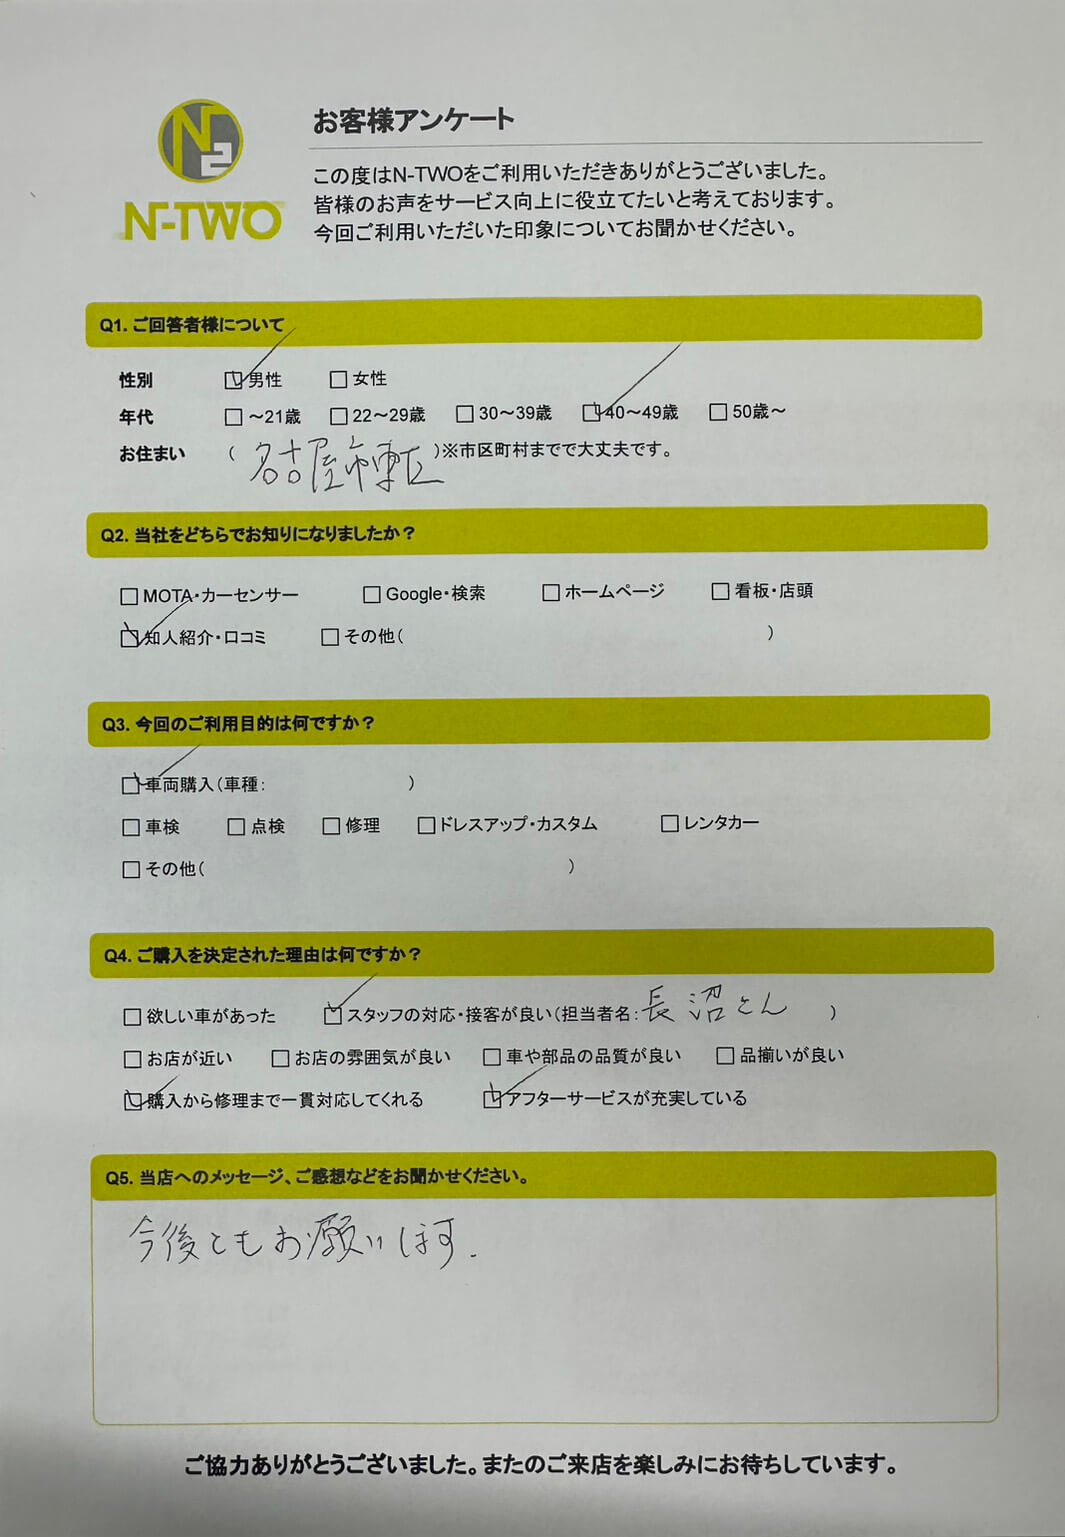 N2
お客様アンケート
N-TWO
この度はN-TWOをご利用いただきありがとうございました。
皆様のお声をサービス向上に役立てたいと考えております。
今回ご利用いただいた印象についてお聞かせください。
Q1. ご回答者様について
性別 ☑男性 □女性
年代 □～21歳 □22～29歳 □30～39歳 ☑40～49歳 □50歳～
お住まい (名古屋市東区)※市区町村までで大丈夫です。
Q2. 当社をどちらでお知りになりましたか？
□MOTA・カーセンサー □Google・検索 □ホームページ □看板・店頭
☑知人紹介・口コミ □その他( )
Q3. 今回のご利用目的は何ですか？
☑車両購入(車種: )
□車検 □点検 □修理 □ドレスアップ・カスタム □レンタカー
□その他( )
Q4. ご購入を決定された理由は何ですか？
□欲しい車があった ☑スタッフの対応・接客が良い(担当者名:長沼さん )
□お店が近い □お店の雰囲気が良い □車や部品の品質が良い □品揃いが良い
☑購入から修理まで一貫対応してくれる ☑アフターサービスが充実している
Q5. 当店へのメッセージ、ご感想などをお聞かせください。
今後ともお願いします.
ご協力ありがとうございました。またのご来店を楽しみにお待ちしています。